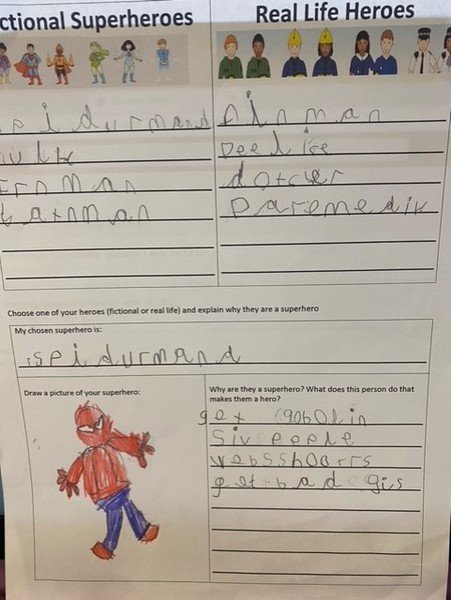 ctional Superheroes
Real Life Heroes
spidurmand
hulk
ernman
batnman
finman
peelise
dotcer
paremedik
Choose one of your heroes (fictional or real life) and explain why they are a superhero
My chosen superhero is:
spidurmand
Draw a picture of your superhero:
Why are they a superhero? What does this person do that
makes them a hero?
get gobolin
siv peeple
websshoors
get bad gis